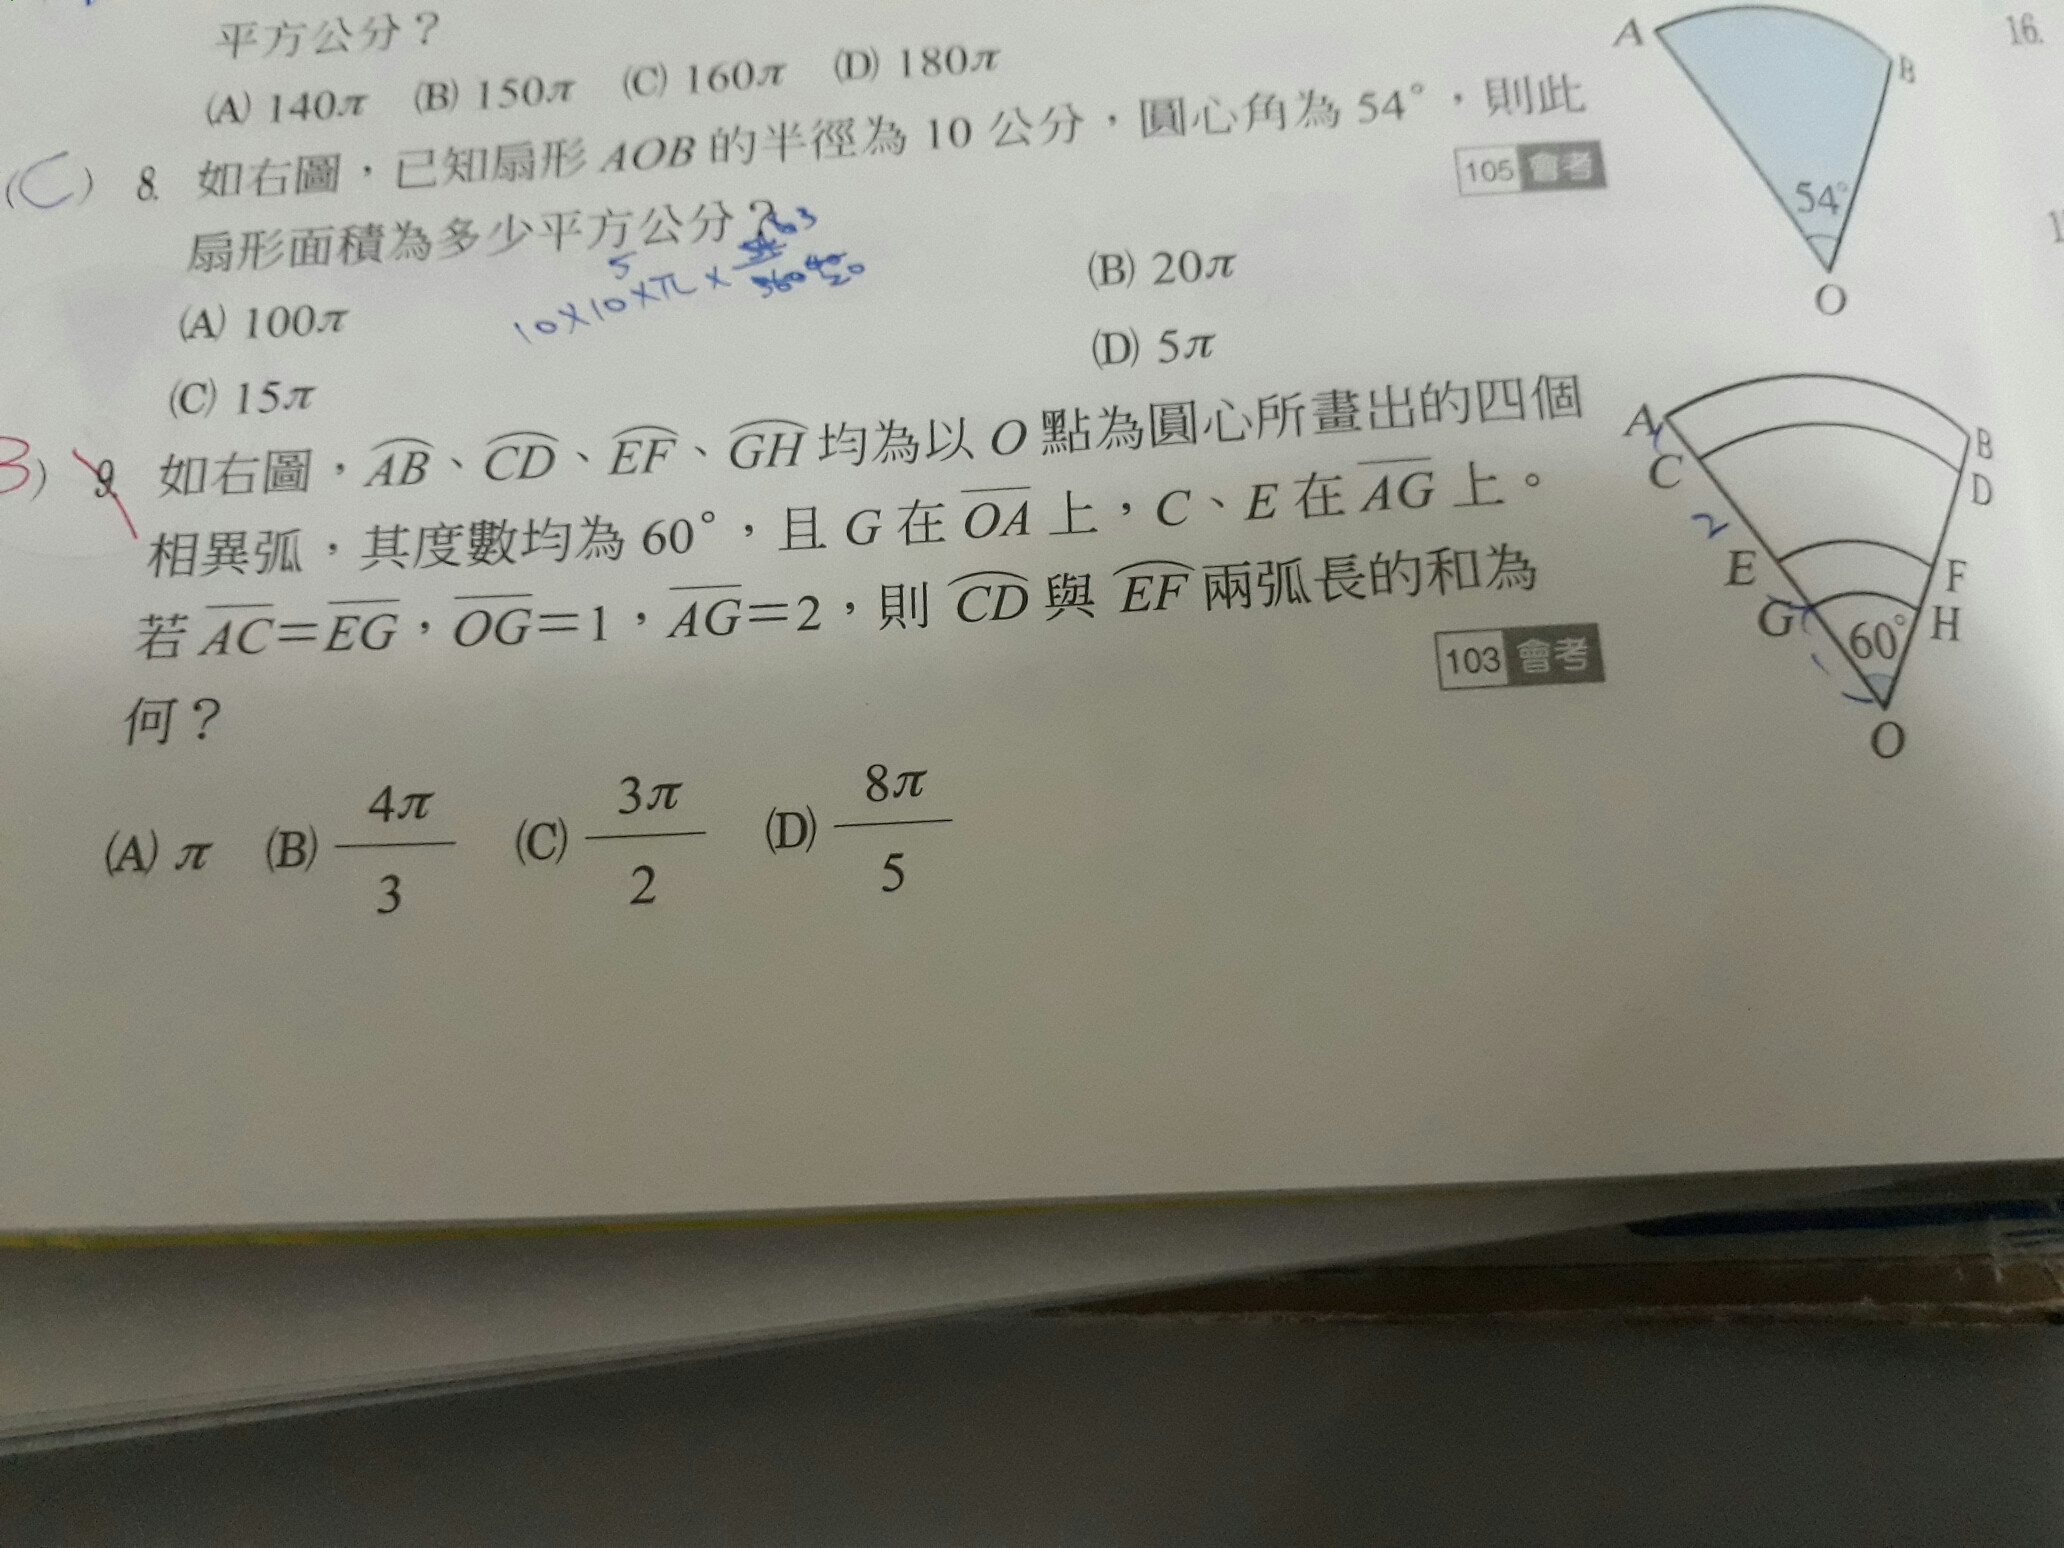 平方公分？
(A) 140π (B) 150π (C) 160π (D) 180π
(C) 8. 如右圖，已知扇形 AOB 的半徑為 10 公分，圓心角為 54°，則此
扇形面積為多少平方公分？
105 會考
10×10×π×
5
(A) 100π
(B) 20π
(C) 15π
(D) 5π
A
B
54°
O
16.
9. 如右圖，AB、CD、EF、GH 均為以 O 點為圓心所畫出的四個
相異弧，其度數均為 60°，且 G 在 OA 上，C、E 在 AG 上。
若 AC=EG，OG=1，AG=2，則 CD 與 EF 兩弧長的和為
何？
103 會考
(A) π (B) 4π/3 (C) 3π/2 (D) 8π/5
A
B
C
D
2
E
F
G
H
60°
O